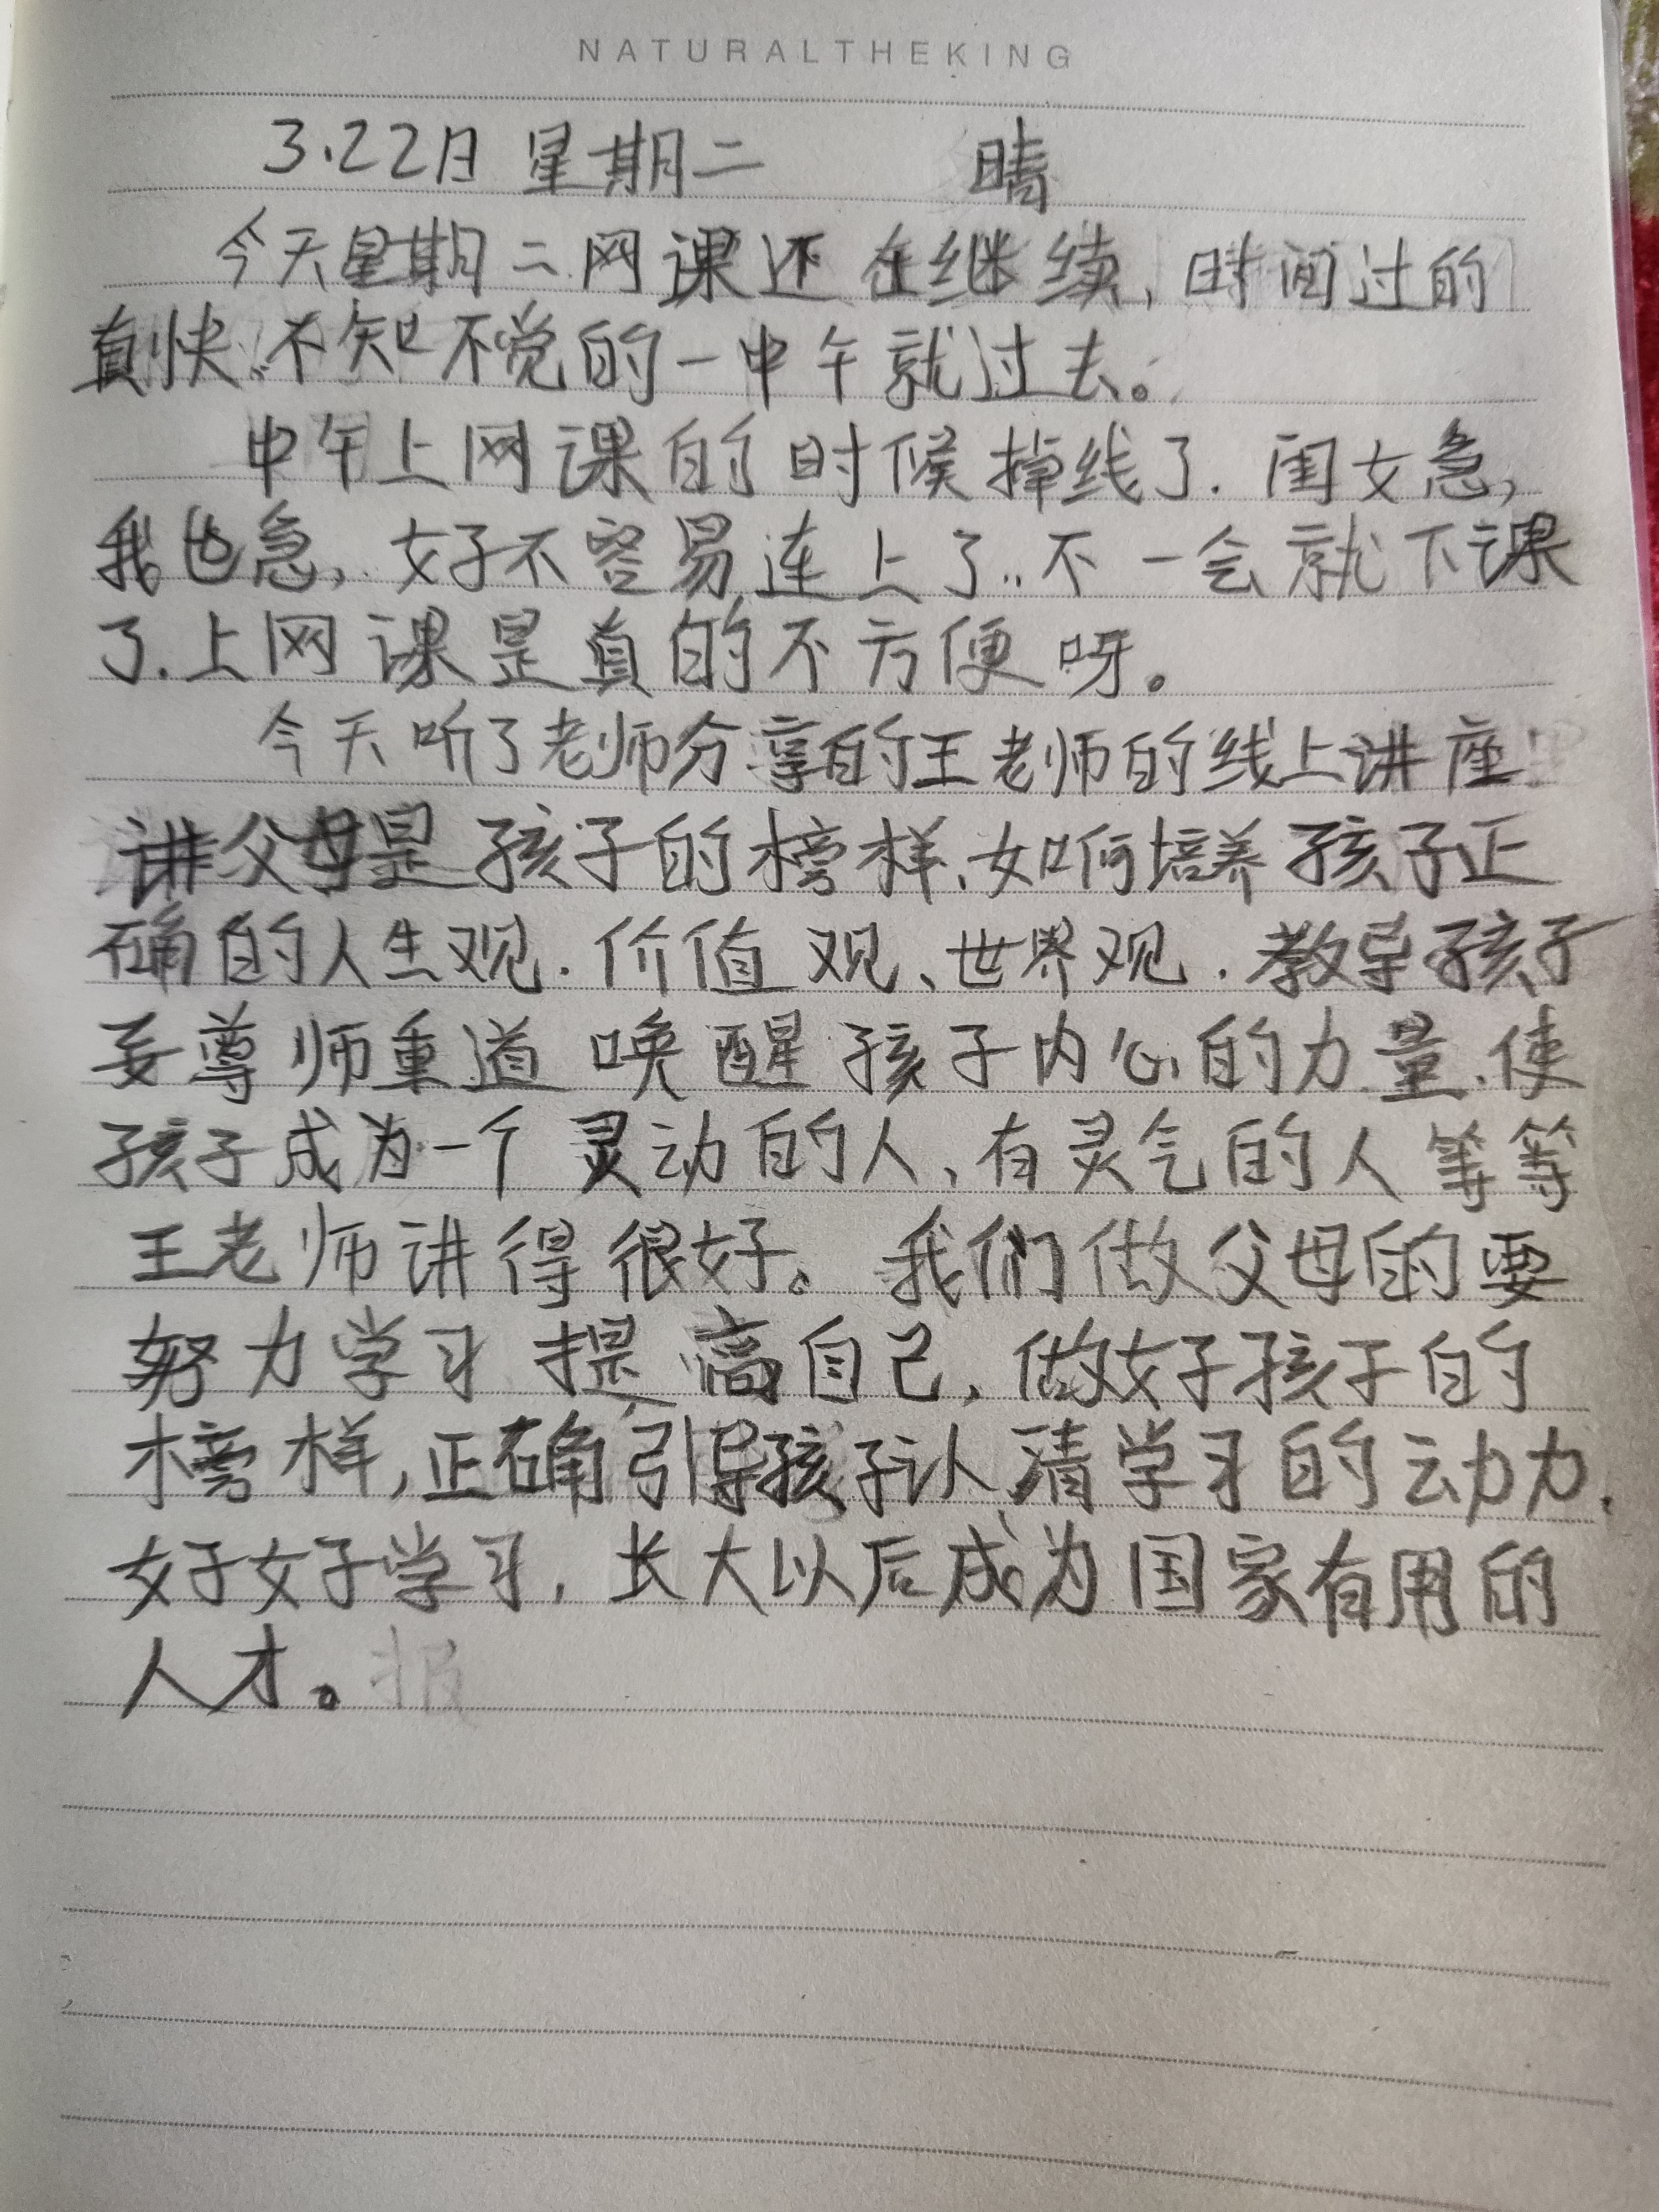 NATURALTHEKING
3.22日 星期二 晴
今天星期二网课还在继续,时间过的
真快、不知不觉的一中午就过去。
中午上网课的时候掉线了.闺女急,
我也急,好不容易连上了..不一会就下课
了.上网课是真的不方便呀。
今天听了老师分享的王老师的线上讲座
讲父母是孩子的榜样、如何培养孩子正
确的人生观.价值观、世界观.教导孩子
要尊师重道 唤醒孩子内心的力量.使
孩子成为一个灵动的人、有灵气的人等等
王老师讲得很好。我们做父母的要
努力学习 提高自己,做好孩子的
榜样,正确引导孩子认清学习的动力.
好好学习,长大以后成为国家有用的
人才。